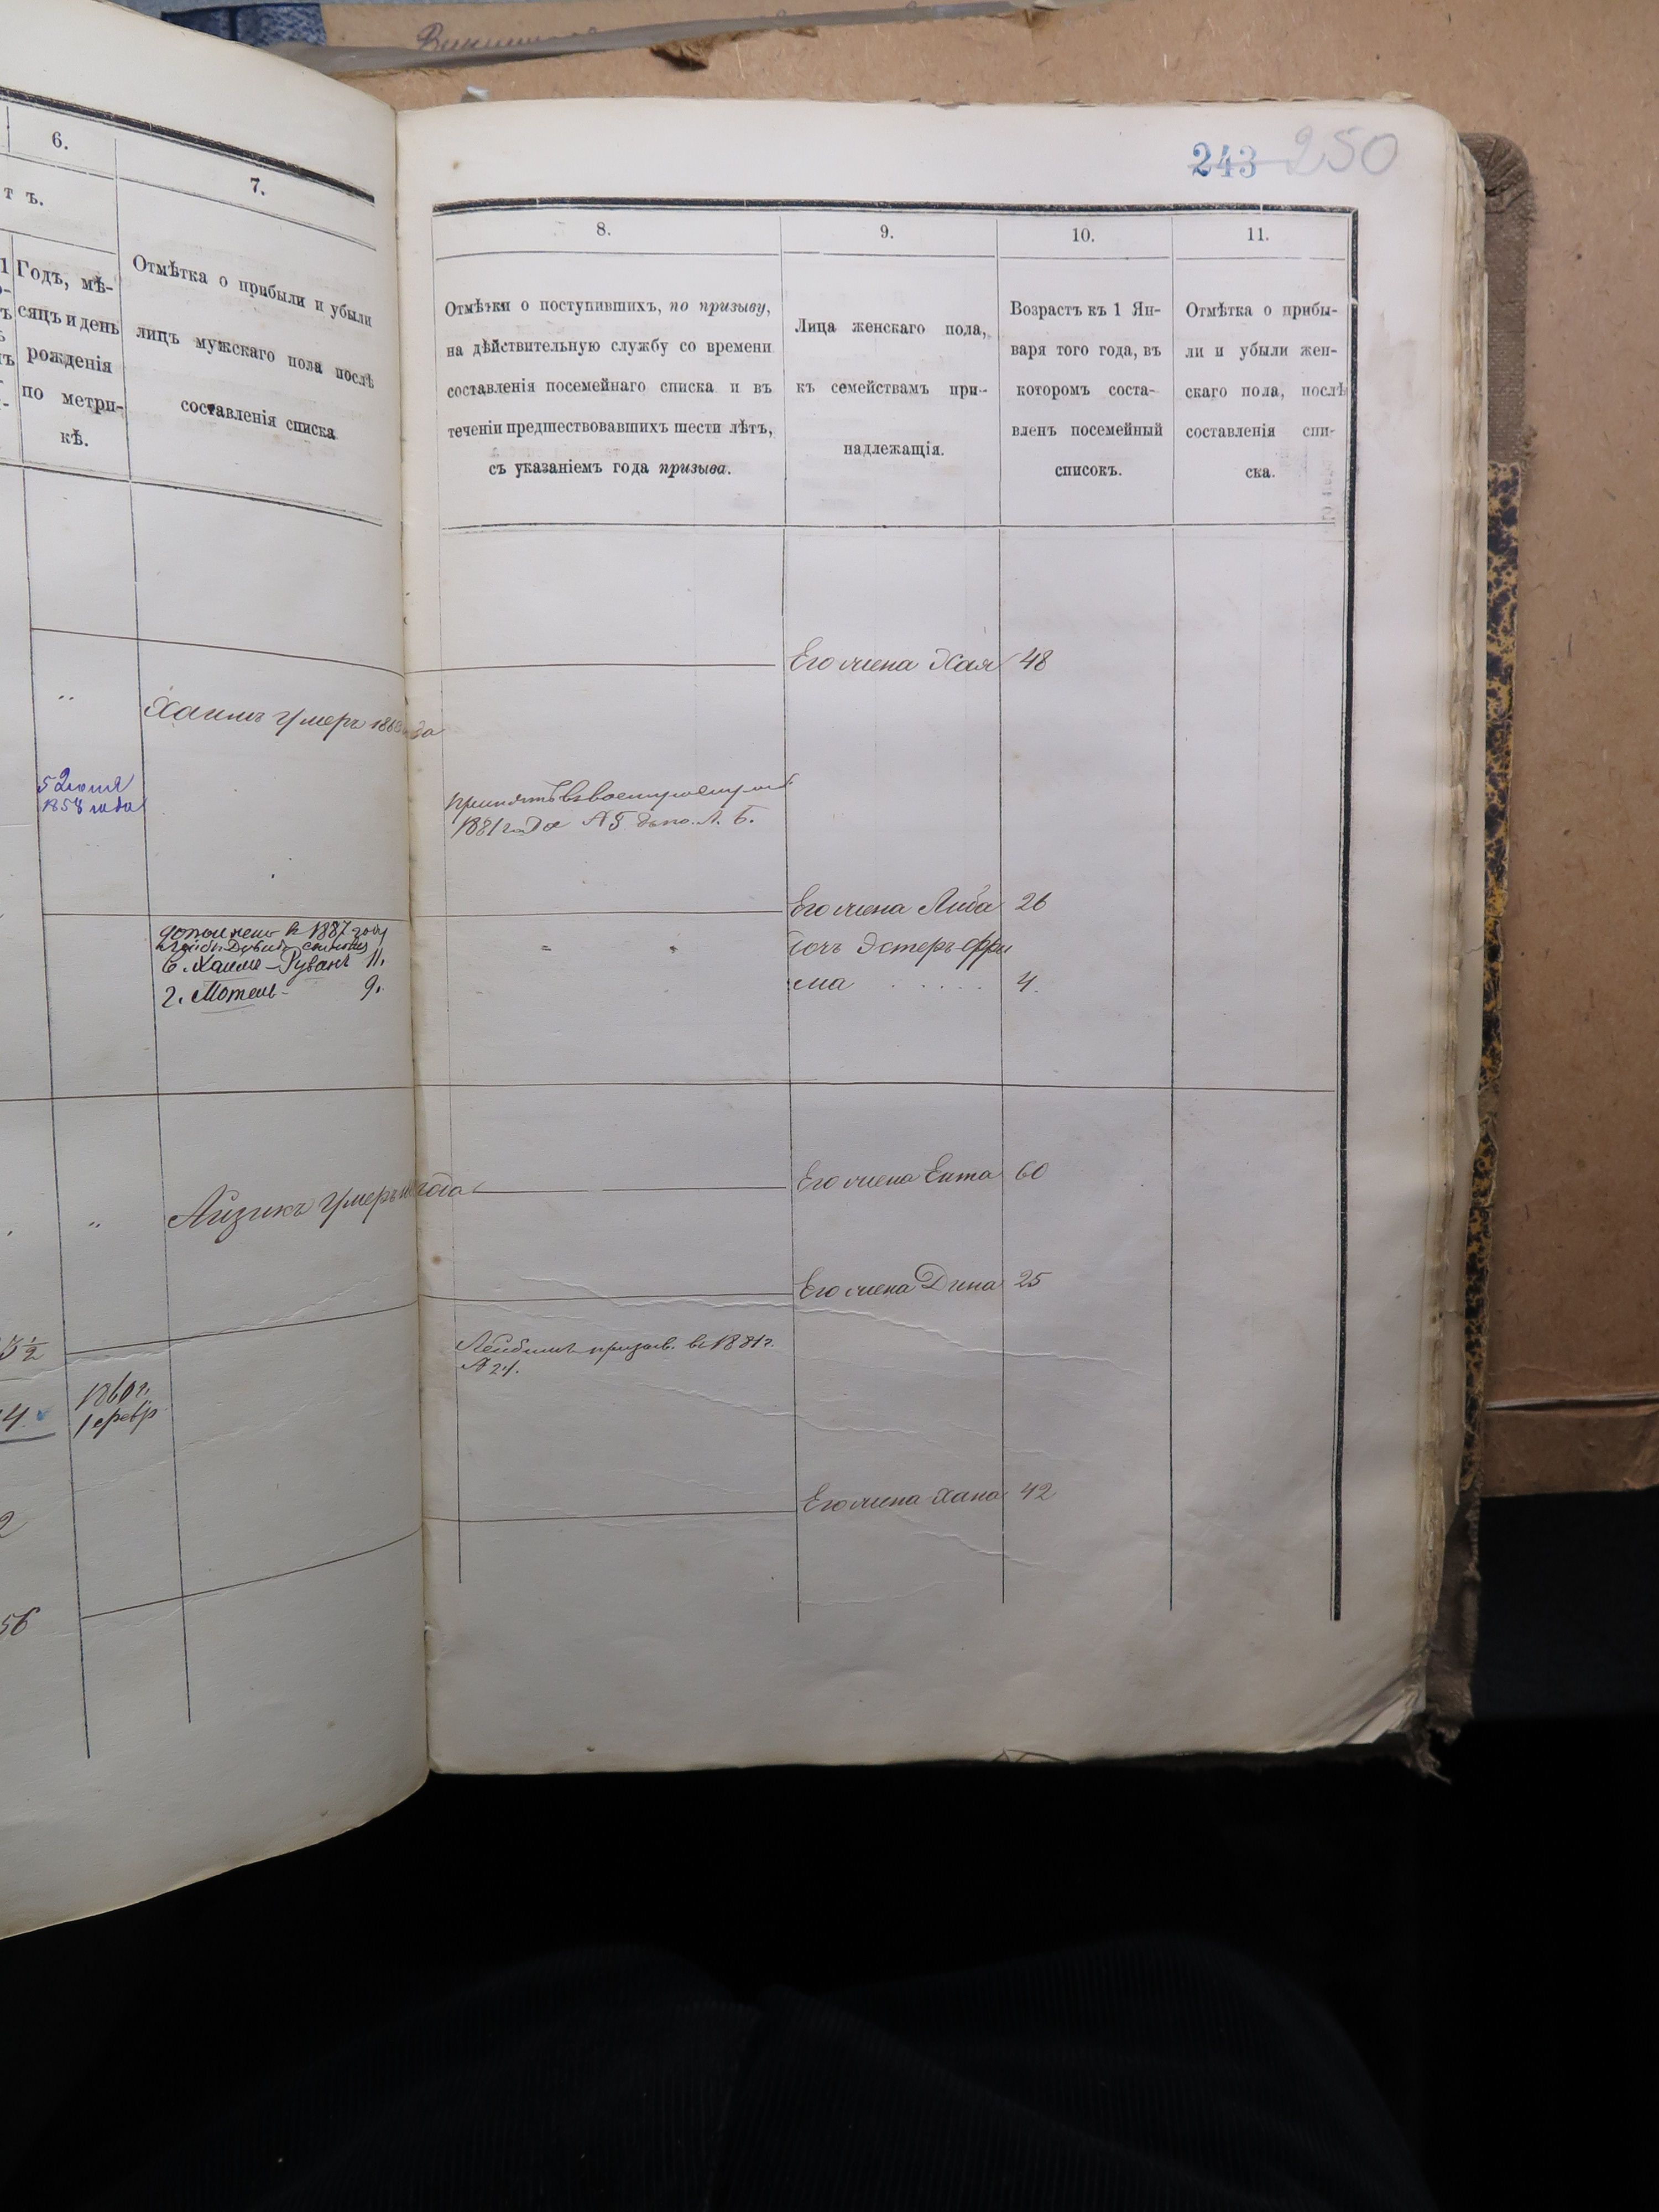 6.
7.
т ъ.
Годъ, мѣ-
сяцъ и день
рожденія
по метри-
кѣ.
Отмѣтка о прибыли и убыли
лицъ мужскаго пола послѣ
составленія списка
Хаимъ умеръ
5 Июня
1858 года
дополнено в 1887 году
в. Хаимъ-Рувенъ 11.
2. Мотель- 9.
Айзикъ умеръ года
3½
4.
1860 г.
1 февр.
2
56
243 250
8.
9.
10.
11.
Отмѣтки о поступившихъ, по призыву,
на дѣйствительную службу со времени
составленія посемейнаго списка и въ
теченіи предшествовавшихъ шести лѣтъ,
съ указаніемъ года призыва.
Лица женскаго пола,
къ семействамъ при-
надлежащія.
Возрастъ къ 1 Ян-
варя того года, въ
которомъ соста-
вленъ посемейный
списокъ.
Отмѣтка о прибы-
ли и убыли жен-
скаго пола, послѣ
составленія спи-
ска.
Его жена Хая 48
принятъ въ военную
1881 года №5
Его жена Либа 26
дочь Эстеръ-Фру
ма . . . . . 4.
Его жена Ента 60
Его жена Дина 25
Лейбишъ призыв. въ 1881 г.
№ 24.
Его жена Хана 42